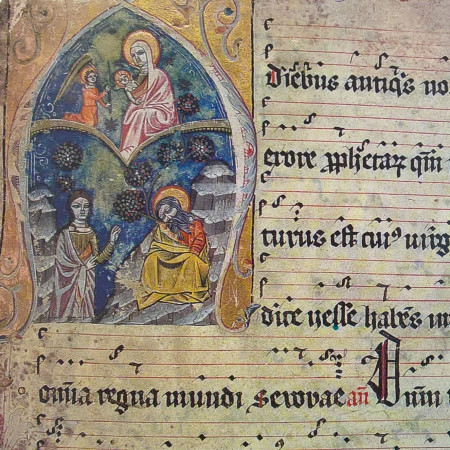 diebus antiqꝭ no
erore ꝓphetaꝝ qm̄
turus est cuiꝰ uirg
dice yesse habēs
om̄ia regna mundi seuouae an̄ Dnm̄